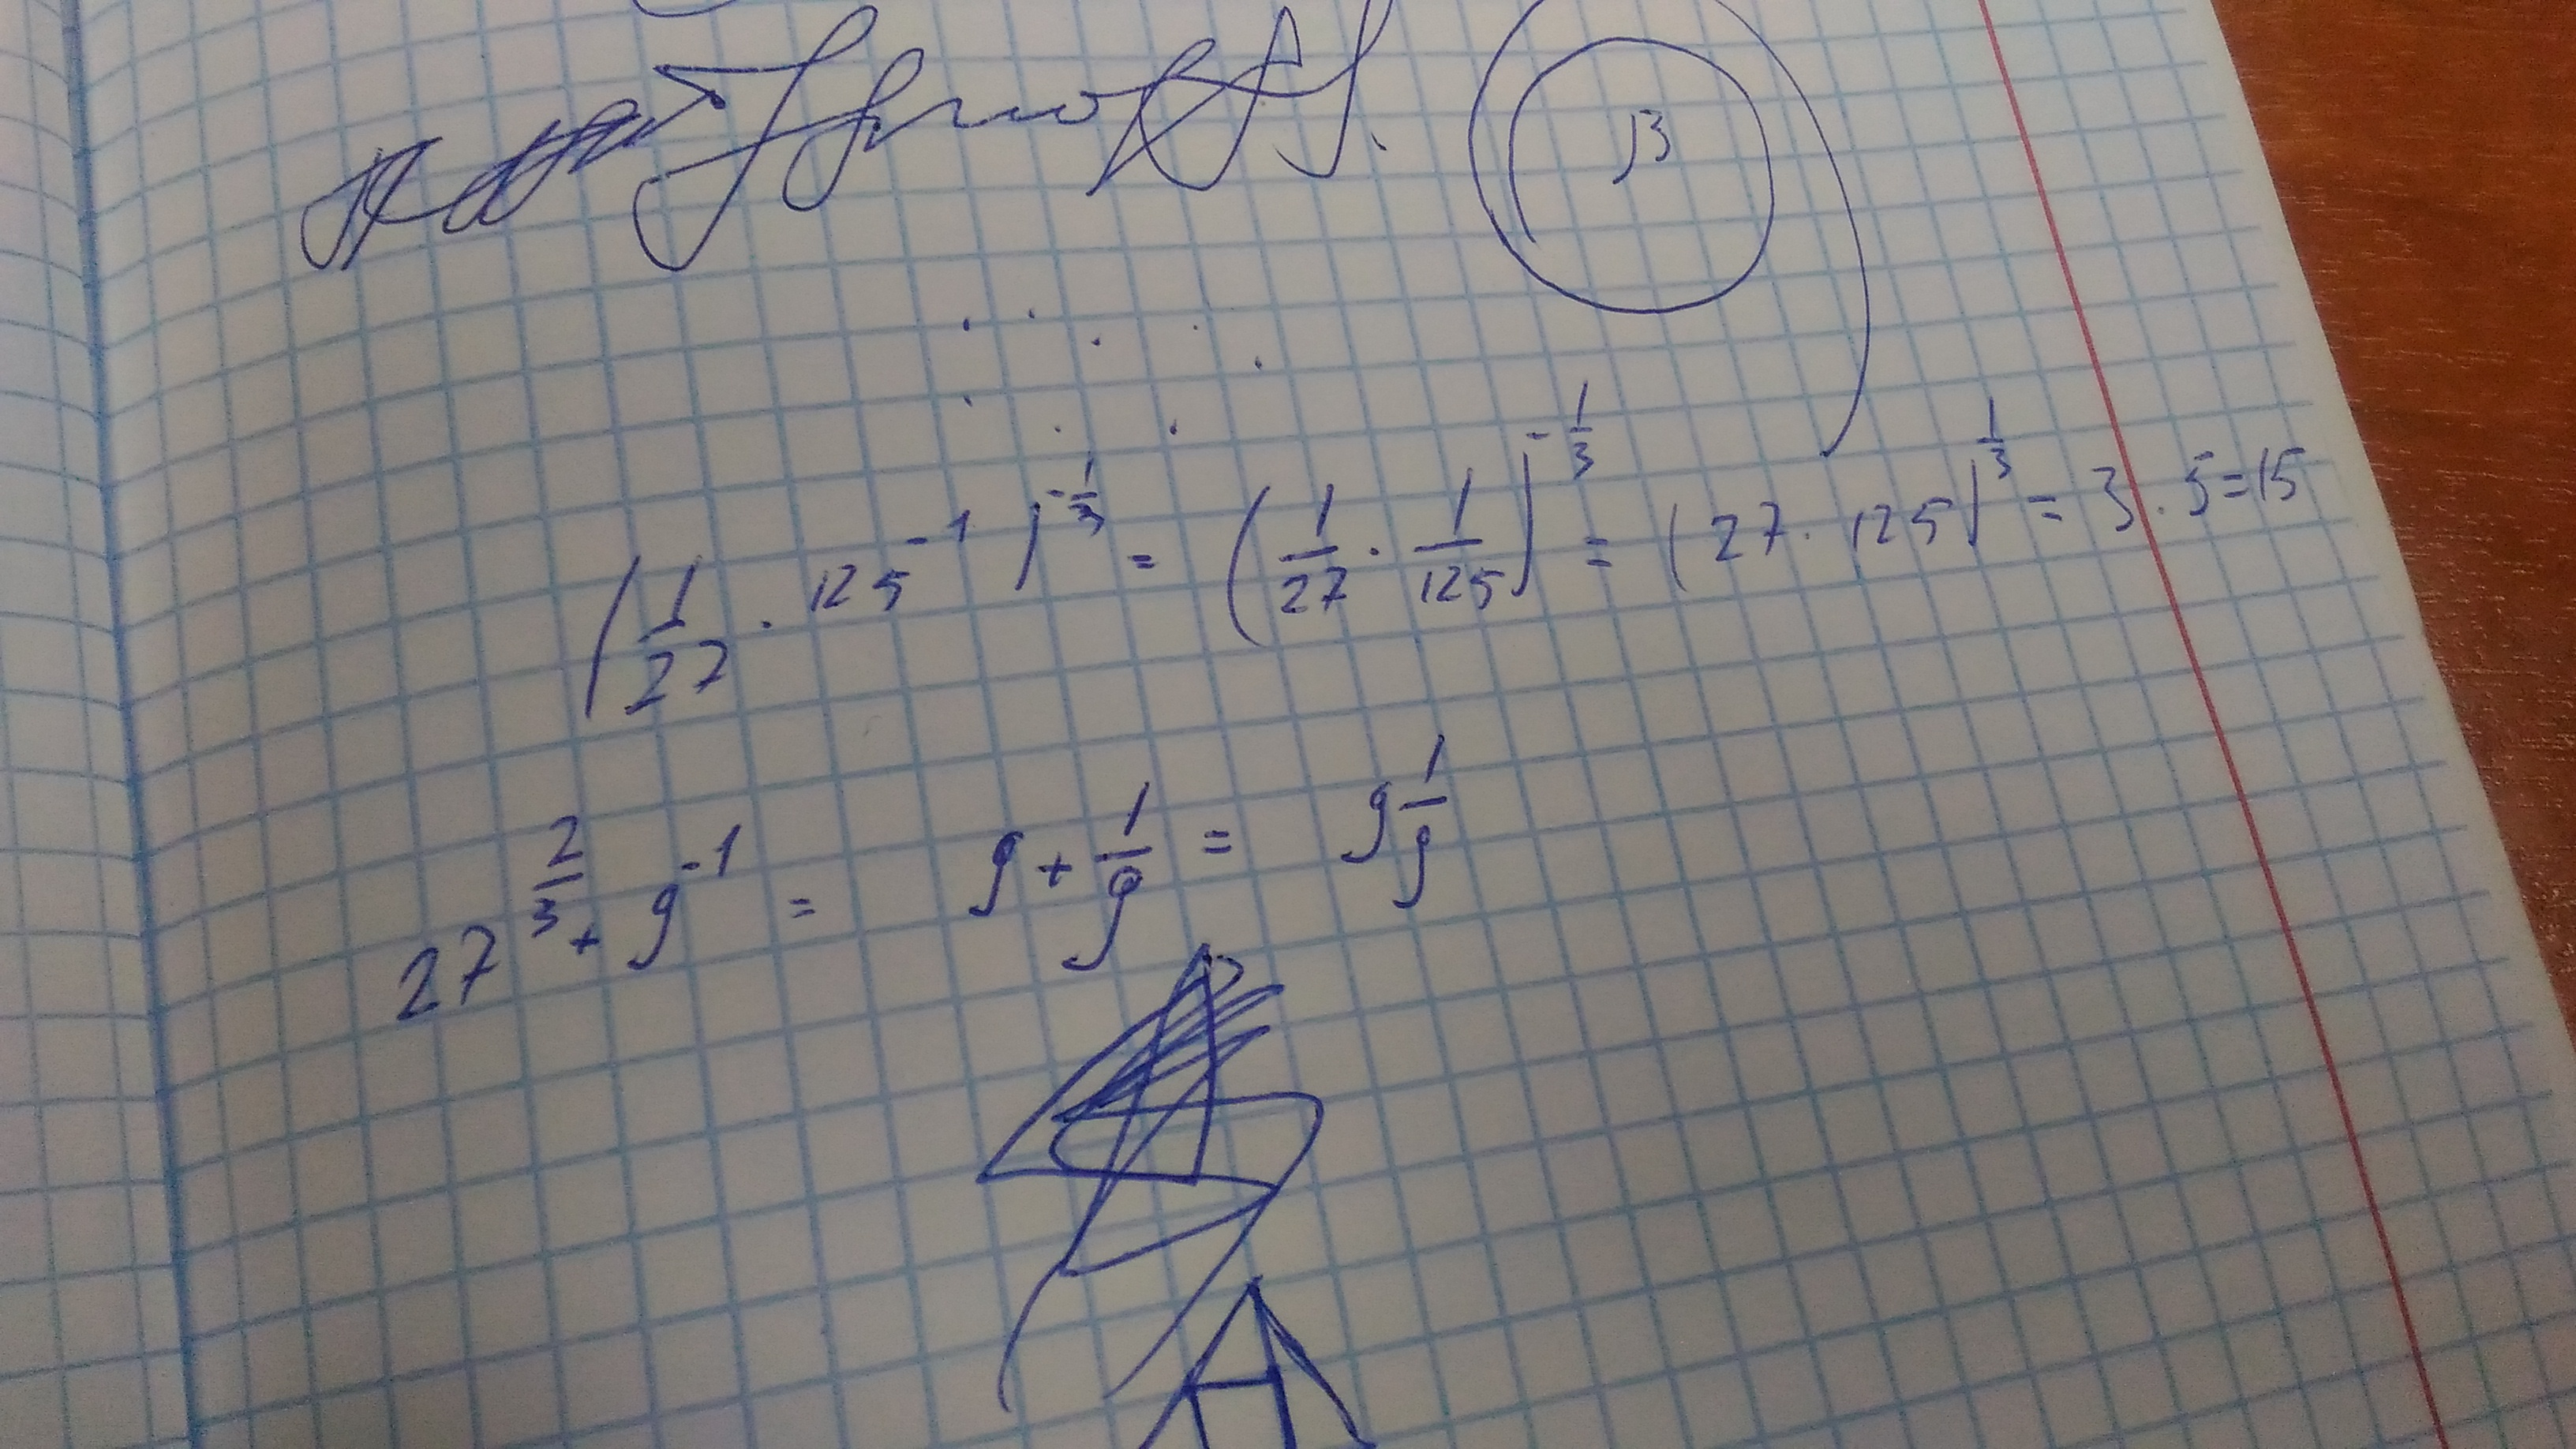 β
(1/27 · 125^-1)^-1/3 = (1/27 · 1/125)^-1/3 = (27 · 125)^1/3 = 3 · 5 = 15
27^2/3 + 9^-1 = 9 + 1/9 = 9 1/9